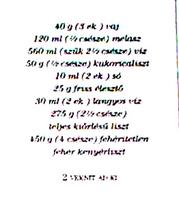 40 g (3 ek.) vaj
120 ml (½ csésze) melasz
560 ml (szűk 2½ csésze) víz
50 g (½ csésze) kukoricaliszt
10 ml (2 ek.) só
25 g friss élesztő
30 ml (2 ek.) langyos víz
275 g (2½ csésze)
teljes kiőrlésű liszt
450 g (4 csésze) fehérítetlen
fehér kenyérliszt
2 VEKNIT AD KI